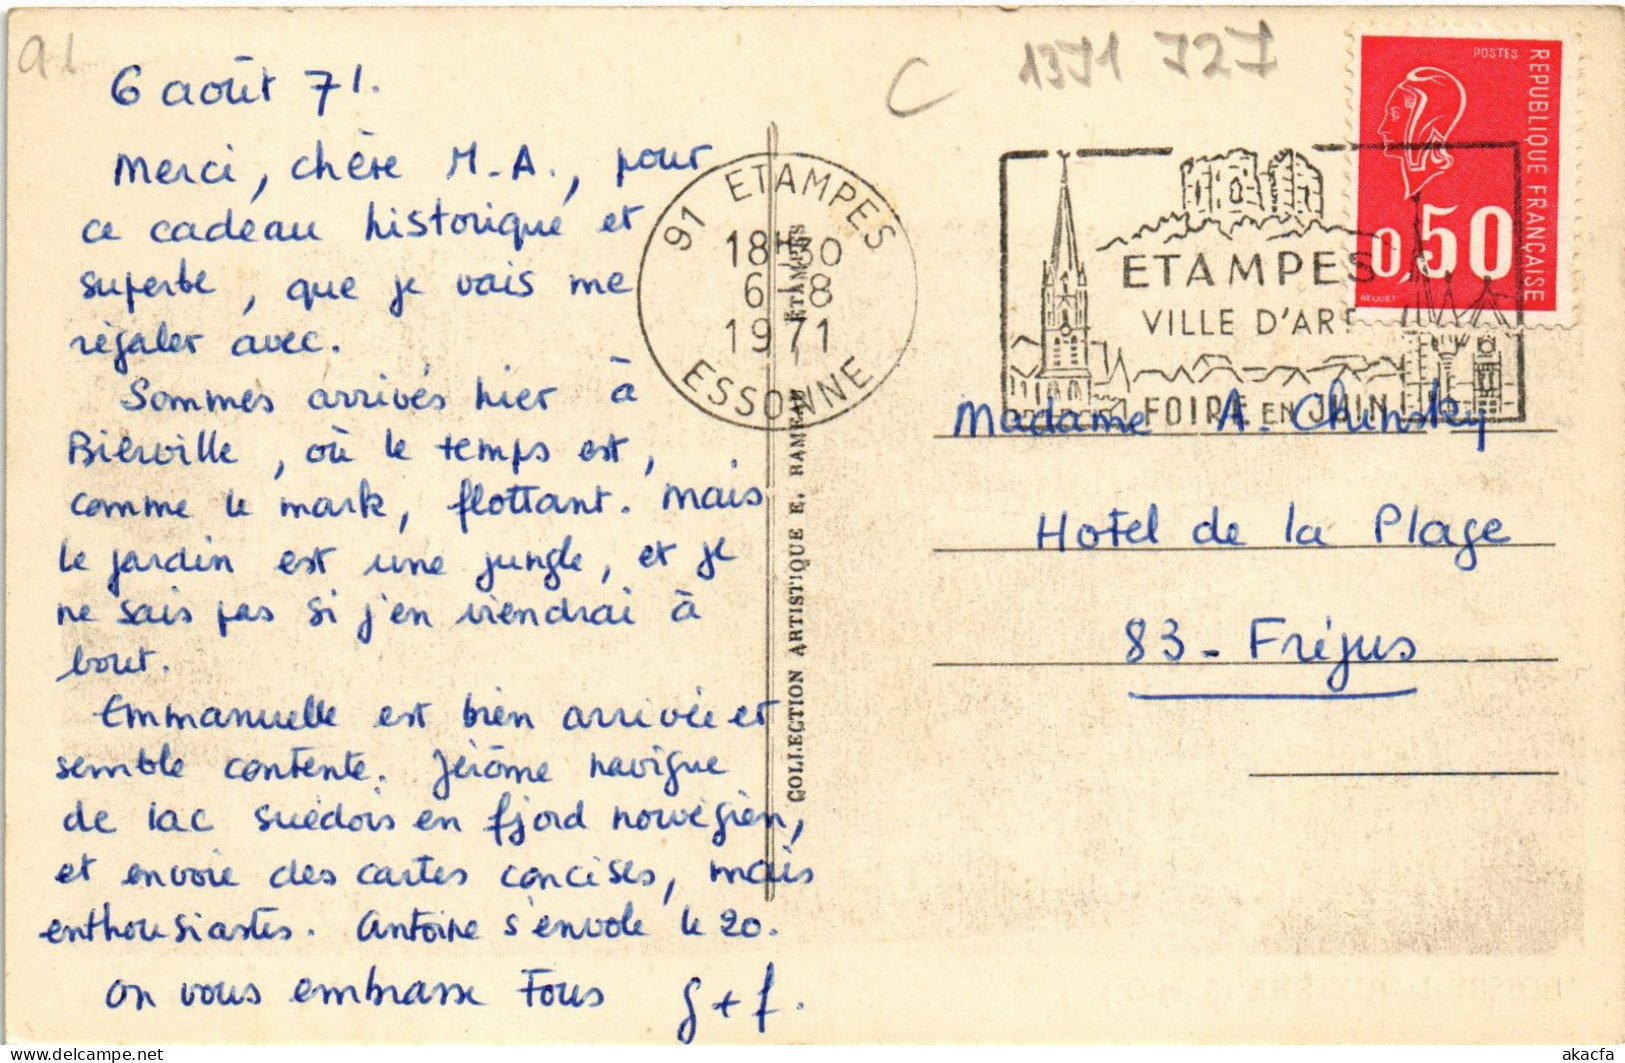 91
6 août 71.
Merci, chère M.A., pour
ce cadeau historique et
superbe, que je vais me
régaler avec.
Sommes arrivés hier à
Bierville, où le temps est,
comme le mark, flottant. Mais
le jardin est une jungle, et je
ne sais pas si j'en viendrai à
bout.
Emmanuelle est bien arrivée et
semble contente. Jérôme navigue
de lac suédois en fjord norvégien,
et envoie des cartes concises, mais
enthousiastes. Antoine s'envole le 20.
On vous embrasse Tous
g + f.
C 1371 727
91 ETAMPES
18H30
6-8
1971
ESSONNE
ETAMPES
ETAMPES
COLLECTION ARTISTIQUE E. RAMEAU
ETAMPES
VILLE D'ART
FOIRE EN JUIN
POSTES
REPUBLIQUE FRANÇAISE
0,50
BEQUET
Madame A. Chinsky
Hotel de la Plage
83 - Fréjus
akacfa